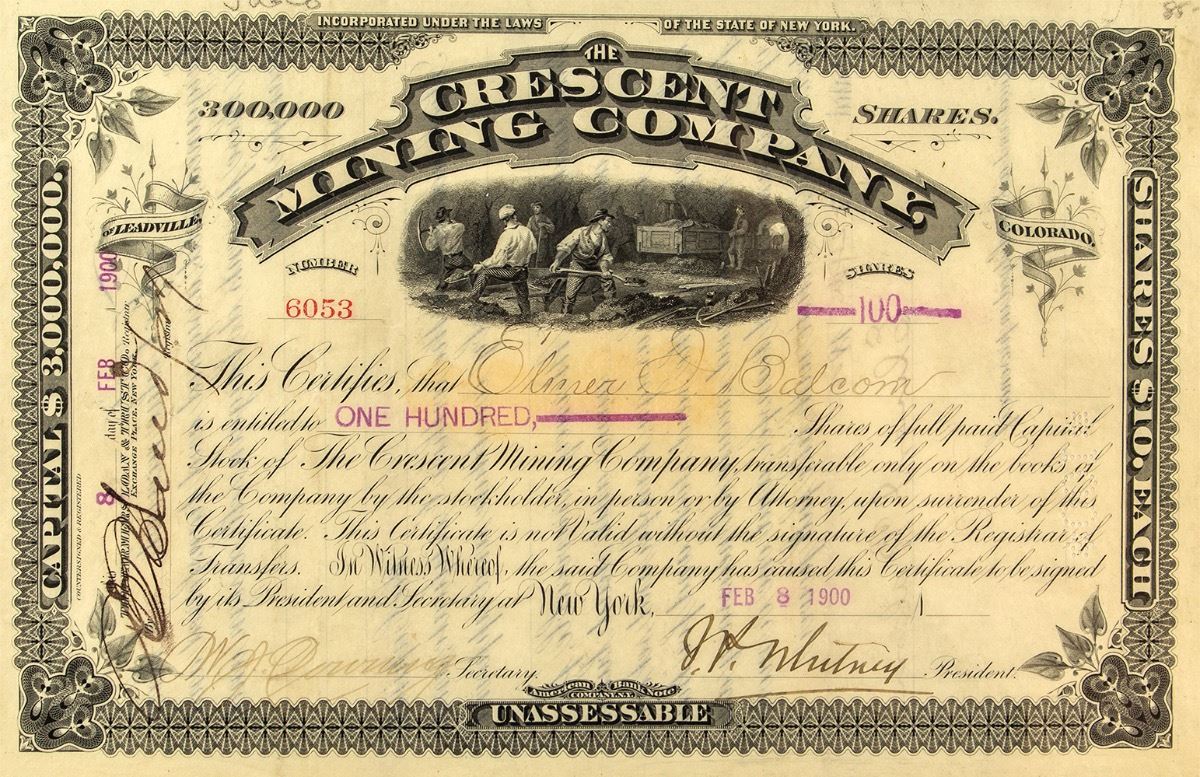 INCORPORATED UNDER THE LAWS OF THE STATE OF NEW YORK.
THE
CRESCENT
MINING COMPANY
300,000 SHARES.
OF LEADVILLE, COLORADO.
NUMBER SHARES
6053 100
This Certifies, that Elmer Balcom
is entitled to ONE HUNDRED, Shares of full paid Capital
Stock of The Crescent Mining Company, transferable only on the books of
the Company by the stockholder, in person or by Attorney, upon surrender of this
Certificate. This Certificate is not Valid without the signature of the Registrar of
Transfers. In Witness Whereof, the said Company has caused this Certificate to be signed
by its President and Secretary at New York, FEB 8 1900
Secretary. J. P. Whitney President.
American Bank Note
COMPANY, N.Y.
UNASSESSABLE
CAPITAL $ 3,000,000.
COUNTERSIGNED & REGISTERED
8 day of FEB 1900
LOAN & TRUST CO. Registrar
EXCHANGE PLACE, NEW YORK
SHARES $10. EACH